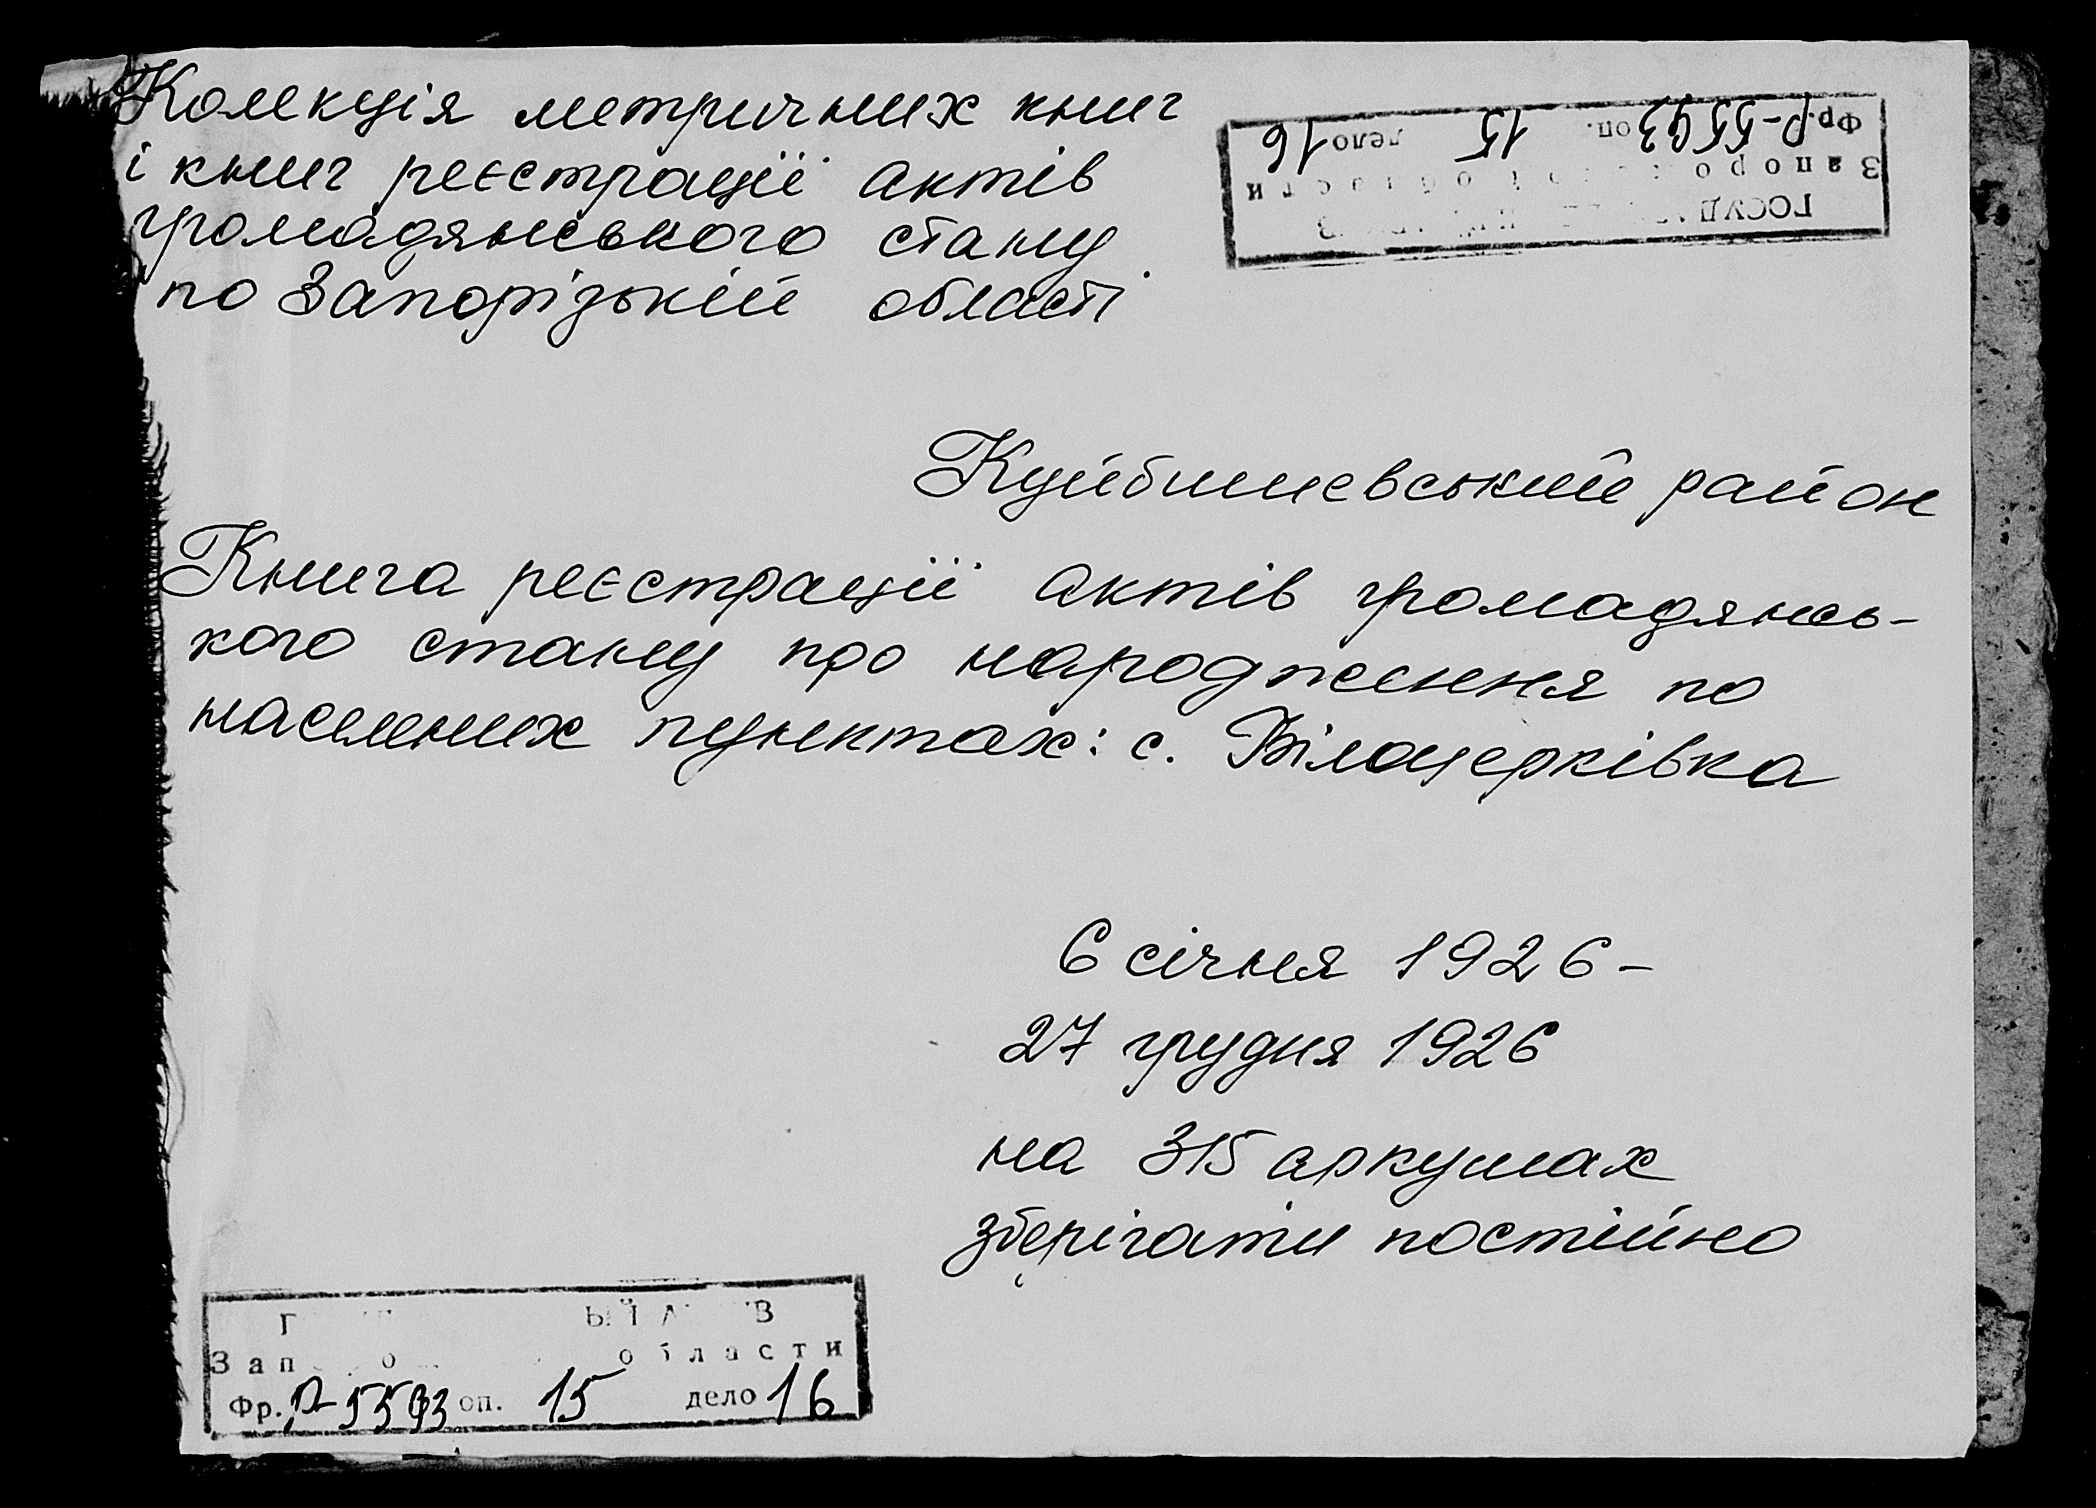 Колекція метричних книг
і книг реєстрації актів
громадянського стану
по Запорізькій області
Фр. Р-5593 оп. 15 дело 16
области
Куйбишевський район
Книга реєстрації актів громадянсь-
кого стану про народження по
населених пунктах: с. Білоцерківка
6 січня 1926 –
27 грудня 1926
на 315 аркушах
зберігати постійно
области
Фр. Р-5593 оп. 15 дело 16